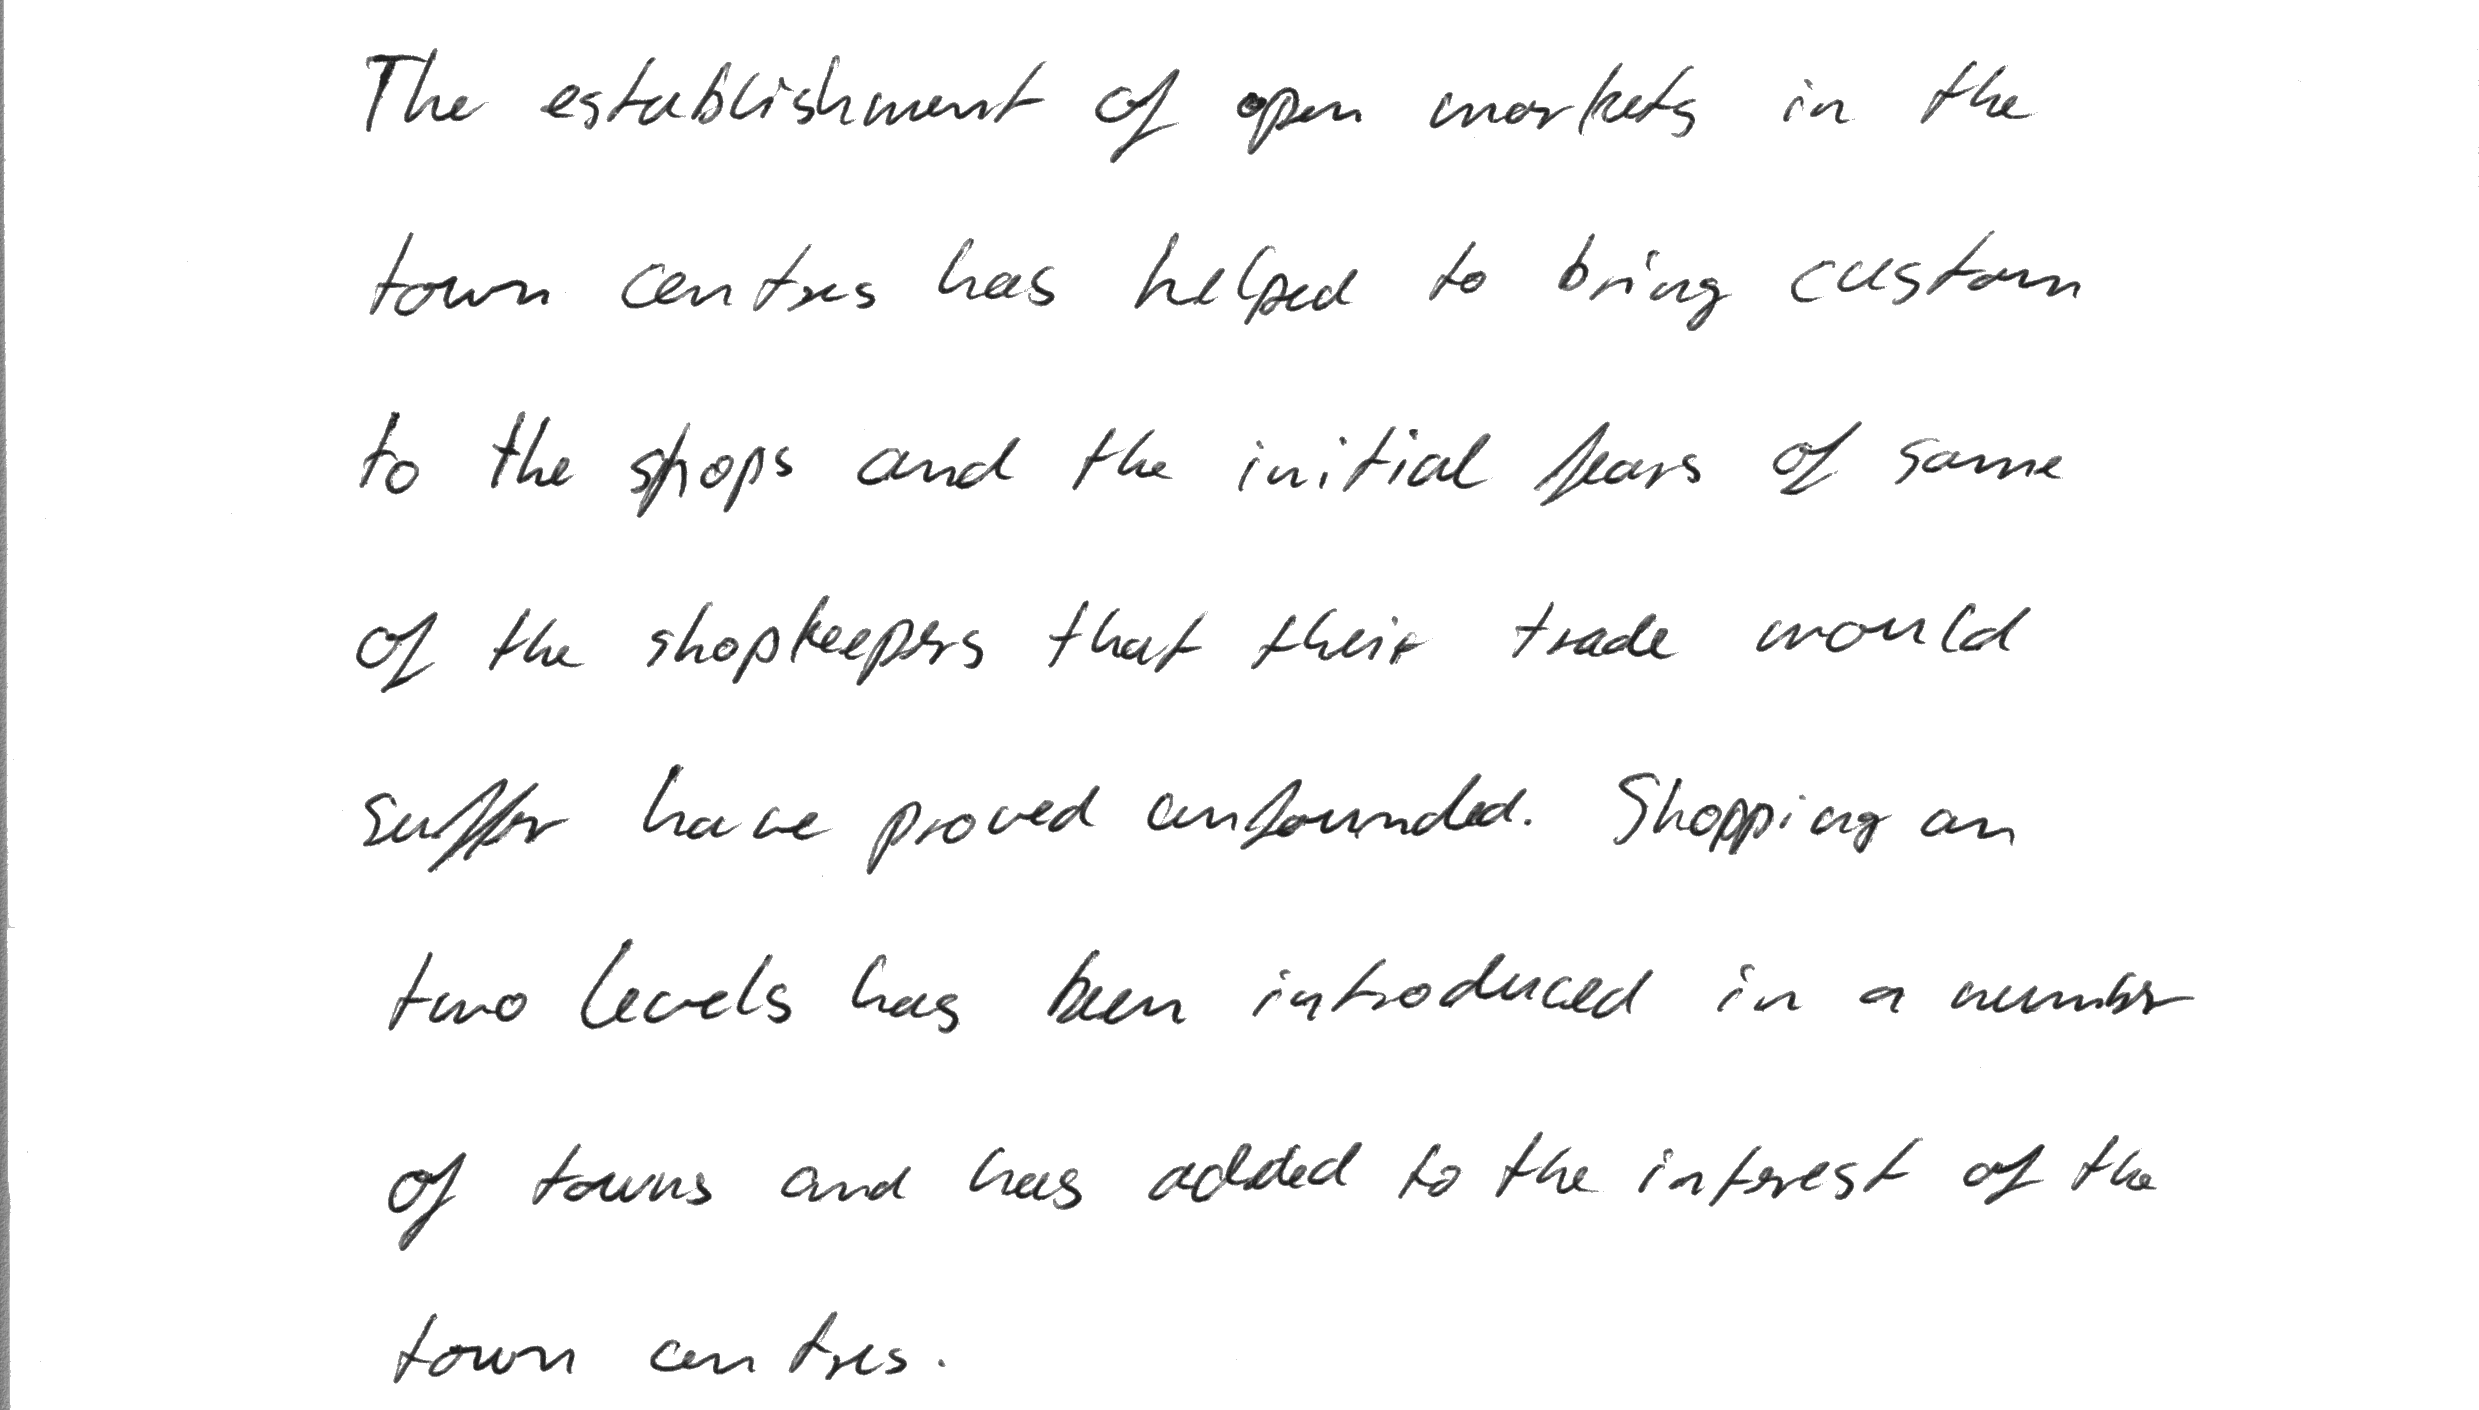 The establishment of open markets in the
town centres has helped to bring custom
to the shops and the initial fears of some
of the shopkeepers that their trade would
suffer have proved unfounded. Shopping on
two levels has been introduced in a number
of towns and has added to the interest of the
town centres.